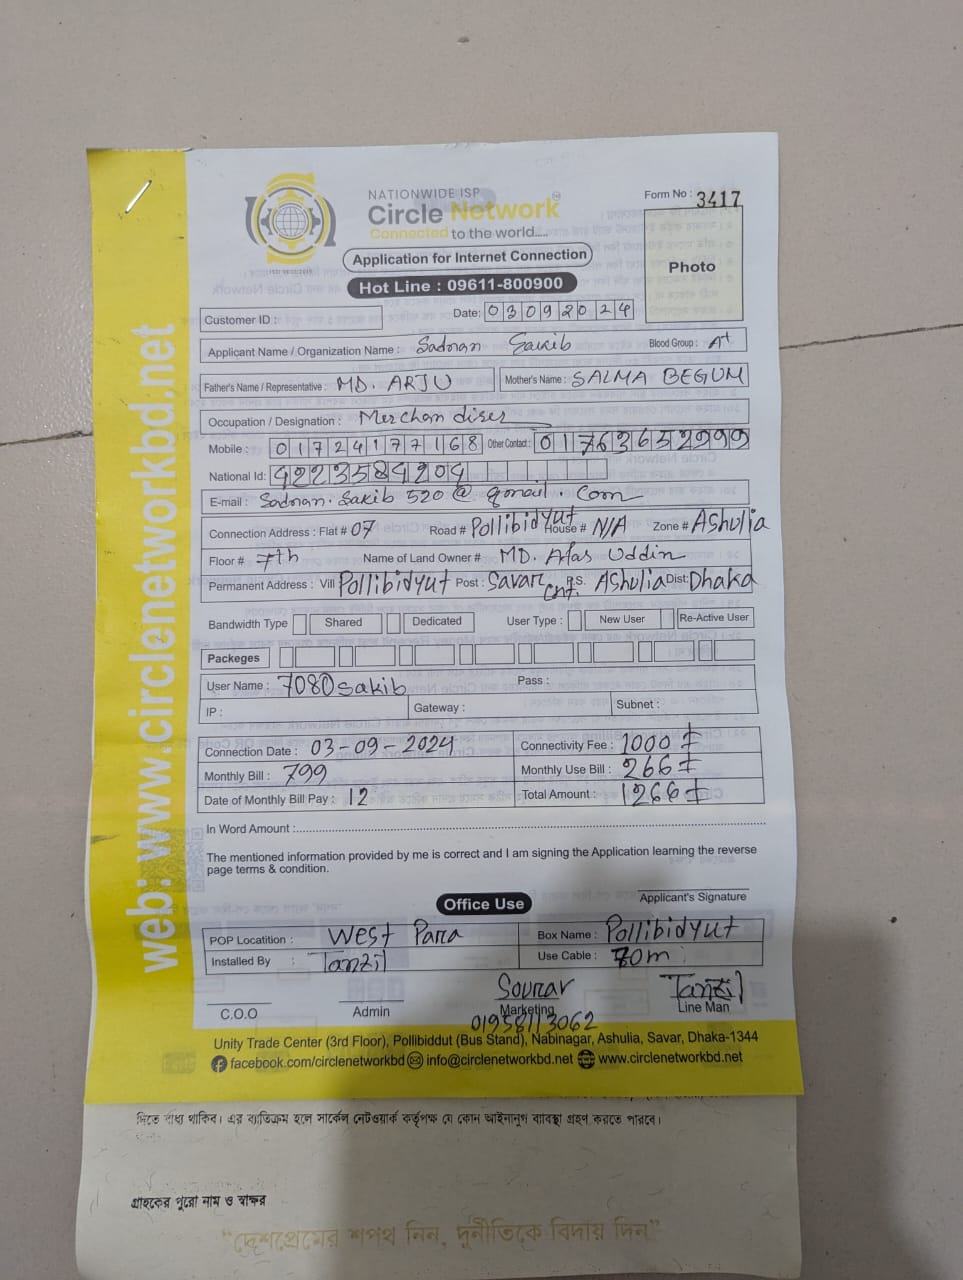 NATIONWIDE ISP
Circle Network
Connected to the world....
Form No : 3417
Application for Internet Connection
Hot Line : 09611-800900
Photo
Customer ID :
Date: 03092024
Applicant Name / Organization Name : Sadnan Sakib Blood Group : A+
Father's Name / Representative : MD. ARJU Mother's Name : SALMA BEGUM
Occupation / Designation : Merchandiser
Mobile : 01724177168 Other Contact : 01763652999
National Id: 4223584204
E-mail : Sadnan.Sakib520@gmail.com
Connection Address : Flat # 07 Road # Pollibidyut House # N/A Zone # Ashulia
Floor # 7th Name of Land Owner # MD. Uddin
Permanent Address : Vill Pollibidyut Post : Savar Cnt. P.S. Ashulia Dist: Dhaka
Bandwidth Type Shared Dedicated User Type : New User Re-Active User
Packeges
User Name : 7080sakib Pass :
IP : Gateway : Subnet :
Connection Date : 03-09-2024 Connectivity Fee : 1000 ₮
Monthly Bill : 799 Monthly Use Bill : 266 ₮
Date of Monthly Bill Pay : 12 Total Amount : 1266 ₮
In Word Amount :
The mentioned information provided by me is correct and I am signing the Application learning the reverse
page terms & condition.
Applicant's Signature
Office Use
POP Locatition : West Para Box Name : Pollibidyut
Installed By : Tanzil Use Cable : 70m
Sourav Tanzil
C.O.O Admin Marketing Line Man
01958113062
Unity Trade Center (3rd Floor), Pollibiddut (Bus Stand), Nabinagar, Ashulia, Savar, Dhaka-1344
facebook.com/circlenetworkbd info@circlenetworkbd.net www.circlenetworkbd.net
web: www.circlenetworkbd.net
দিতে বাধ্য থাকিব। এর ব্যতিক্রম হলে সার্কেল নেটওয়ার্ক কর্তৃপক্ষ যে কোন আইনানুগ ব্যাবস্থা গ্রহণ করতে পারবে।
গ্রাহকের পুরো নাম ও স্বাক্ষর
“দেশপ্রেমের শপথ নিন, দুর্নীতিকে বিদায় দিন”